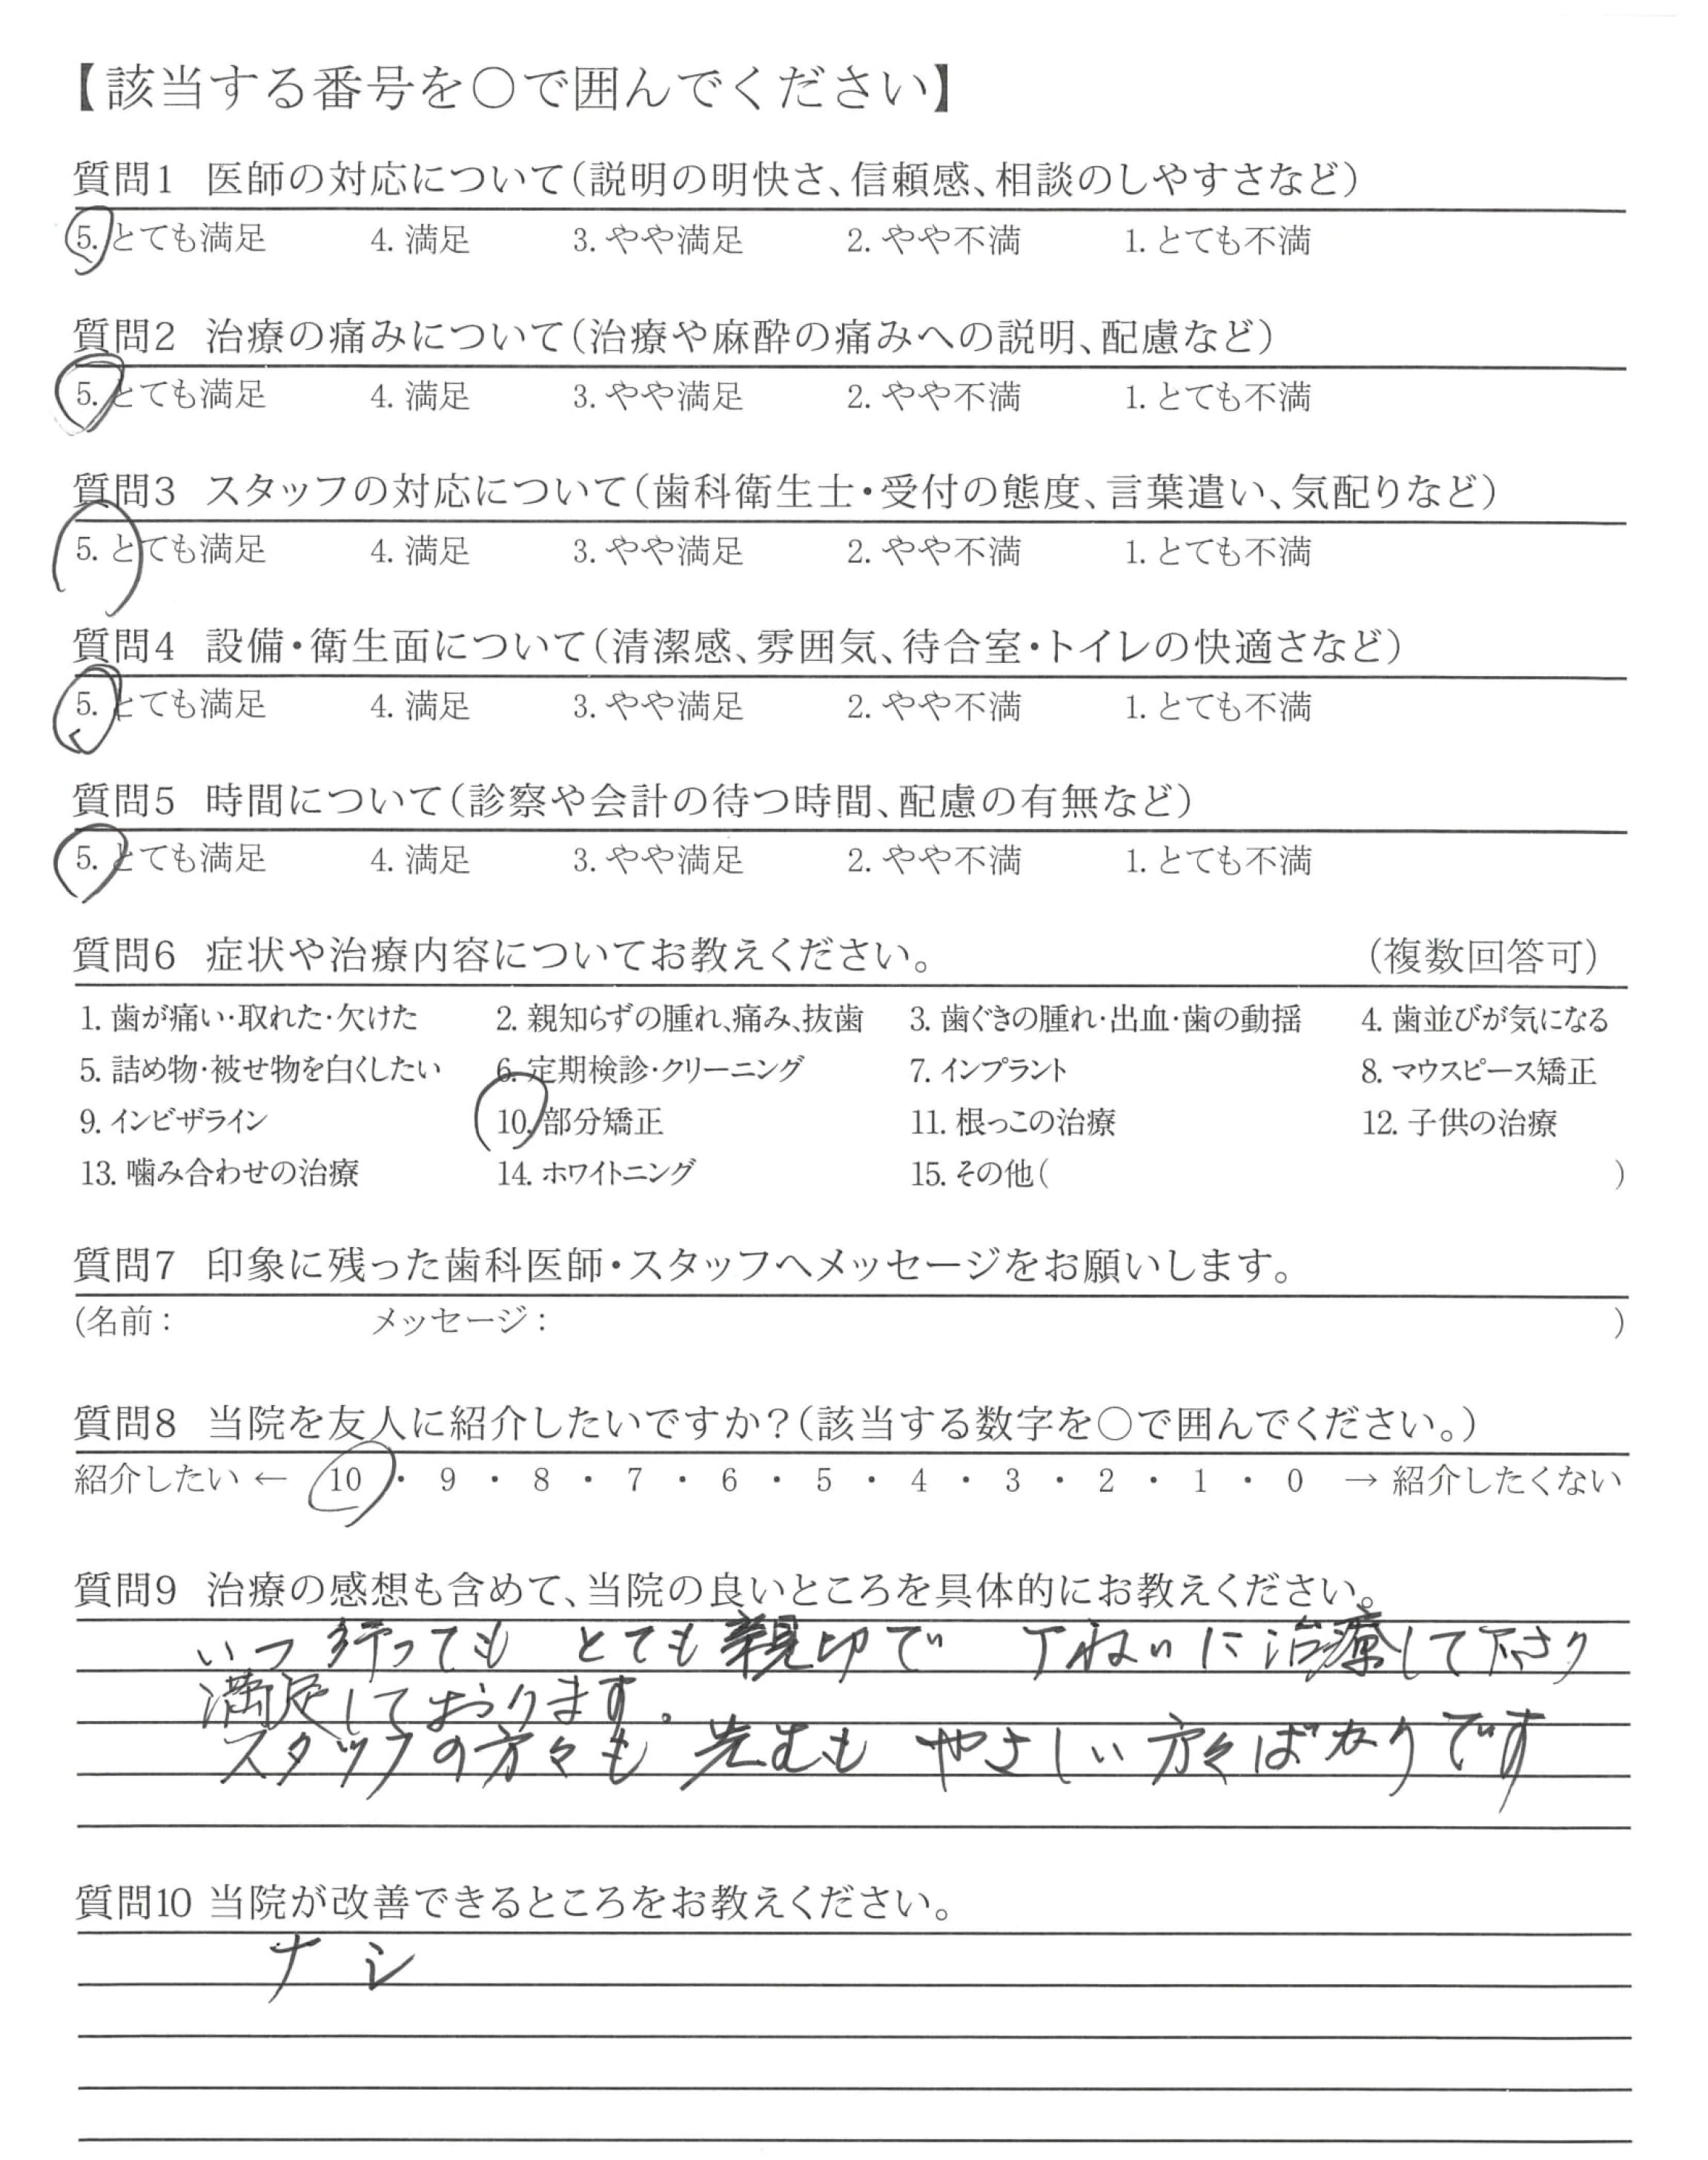 【該当する番号を○で囲んでください】
質問1 医師の対応について(説明の明快さ、信頼感、相談のしやすさなど)
5. とても満足 4. 満足 3. やや満足 2. やや不満 1. とても不満
質問2 治療の痛みについて(治療や麻酔の痛みへの説明、配慮など)
5. とても満足 4. 満足 3. やや満足 2. やや不満 1. とても不満
質問3 スタッフの対応について(歯科衛生士・受付の態度、言葉遣い、気配りなど)
5. とても満足 4. 満足 3. やや満足 2. やや不満 1. とても不満
質問4 設備・衛生面について(清潔感、雰囲気、待合室・トイレの快適さなど)
5. とても満足 4. 満足 3. やや満足 2. やや不満 1. とても不満
質問5 時間について(診察や会計の待つ時間、配慮の有無など)
5. とても満足 4. 満足 3. やや満足 2. やや不満 1. とても不満
質問6 症状や治療内容についてお教えください。 (複数回答可)
1. 歯が痛い・取れた・欠けた 2. 親知らずの腫れ、痛み、抜歯 3. 歯ぐきの腫れ・出血・歯の動揺 4. 歯並びが気になる
5. 詰め物・被せ物を白くしたい 6. 定期検診・クリーニング 7. インプラント 8. マウスピース矯正
9. インビザライン 10. 部分矯正 11. 根っこの治療 12. 子供の治療
13. 噛み合わせの治療 14. ホワイトニング 15. その他( )
質問7 印象に残った歯科医師・スタッフへメッセージをお願いします。
(名前: メッセージ: )
質問8 当院を友人に紹介したいですか?(該当する数字を○で囲んでください。)
紹介したい ← 10 ・ 9 ・ 8 ・ 7 ・ 6 ・ 5 ・ 4 ・ 3 ・ 2 ・ 1 ・ 0 → 紹介したくない
質問9 治療の感想も含めて、当院の良いところを具体的にお教えください。
いつ行っても とても親切で 丁ねいに治療して下さり
満足しております。
スタッフの方々も 先生も やさしい方々ばかりです
質問10 当院が改善できるところをお教えください。
ナシ